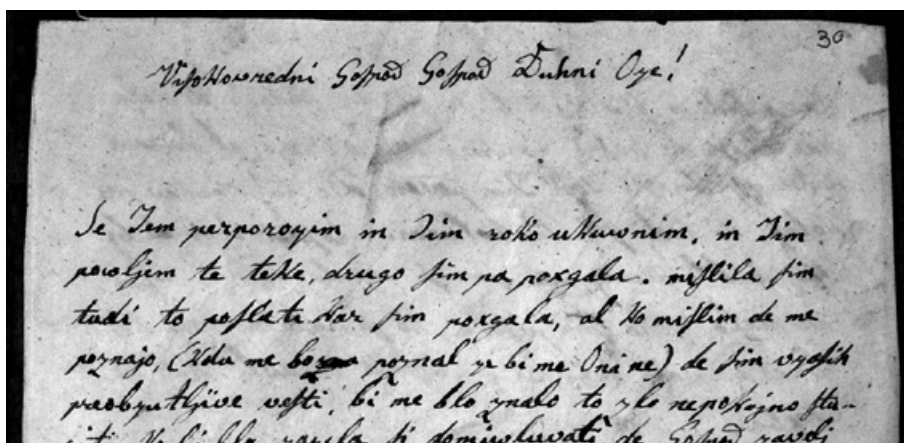 30
Visokovredni Gospod Gospod Duhni Oye!
Se Jem perporozim in Jim roko ukuvnim, in Jim
povoljem te teke, drugo sim pa poxgala. mislila sim
tudi to poslati kar sim poxgala, al ko mislim de me
poznajo, (kdu me poznal ze bi me Oni ne) de sim vzasih
preobzutljive vesti, bi me blo znalo to zlo nepokojno stu-